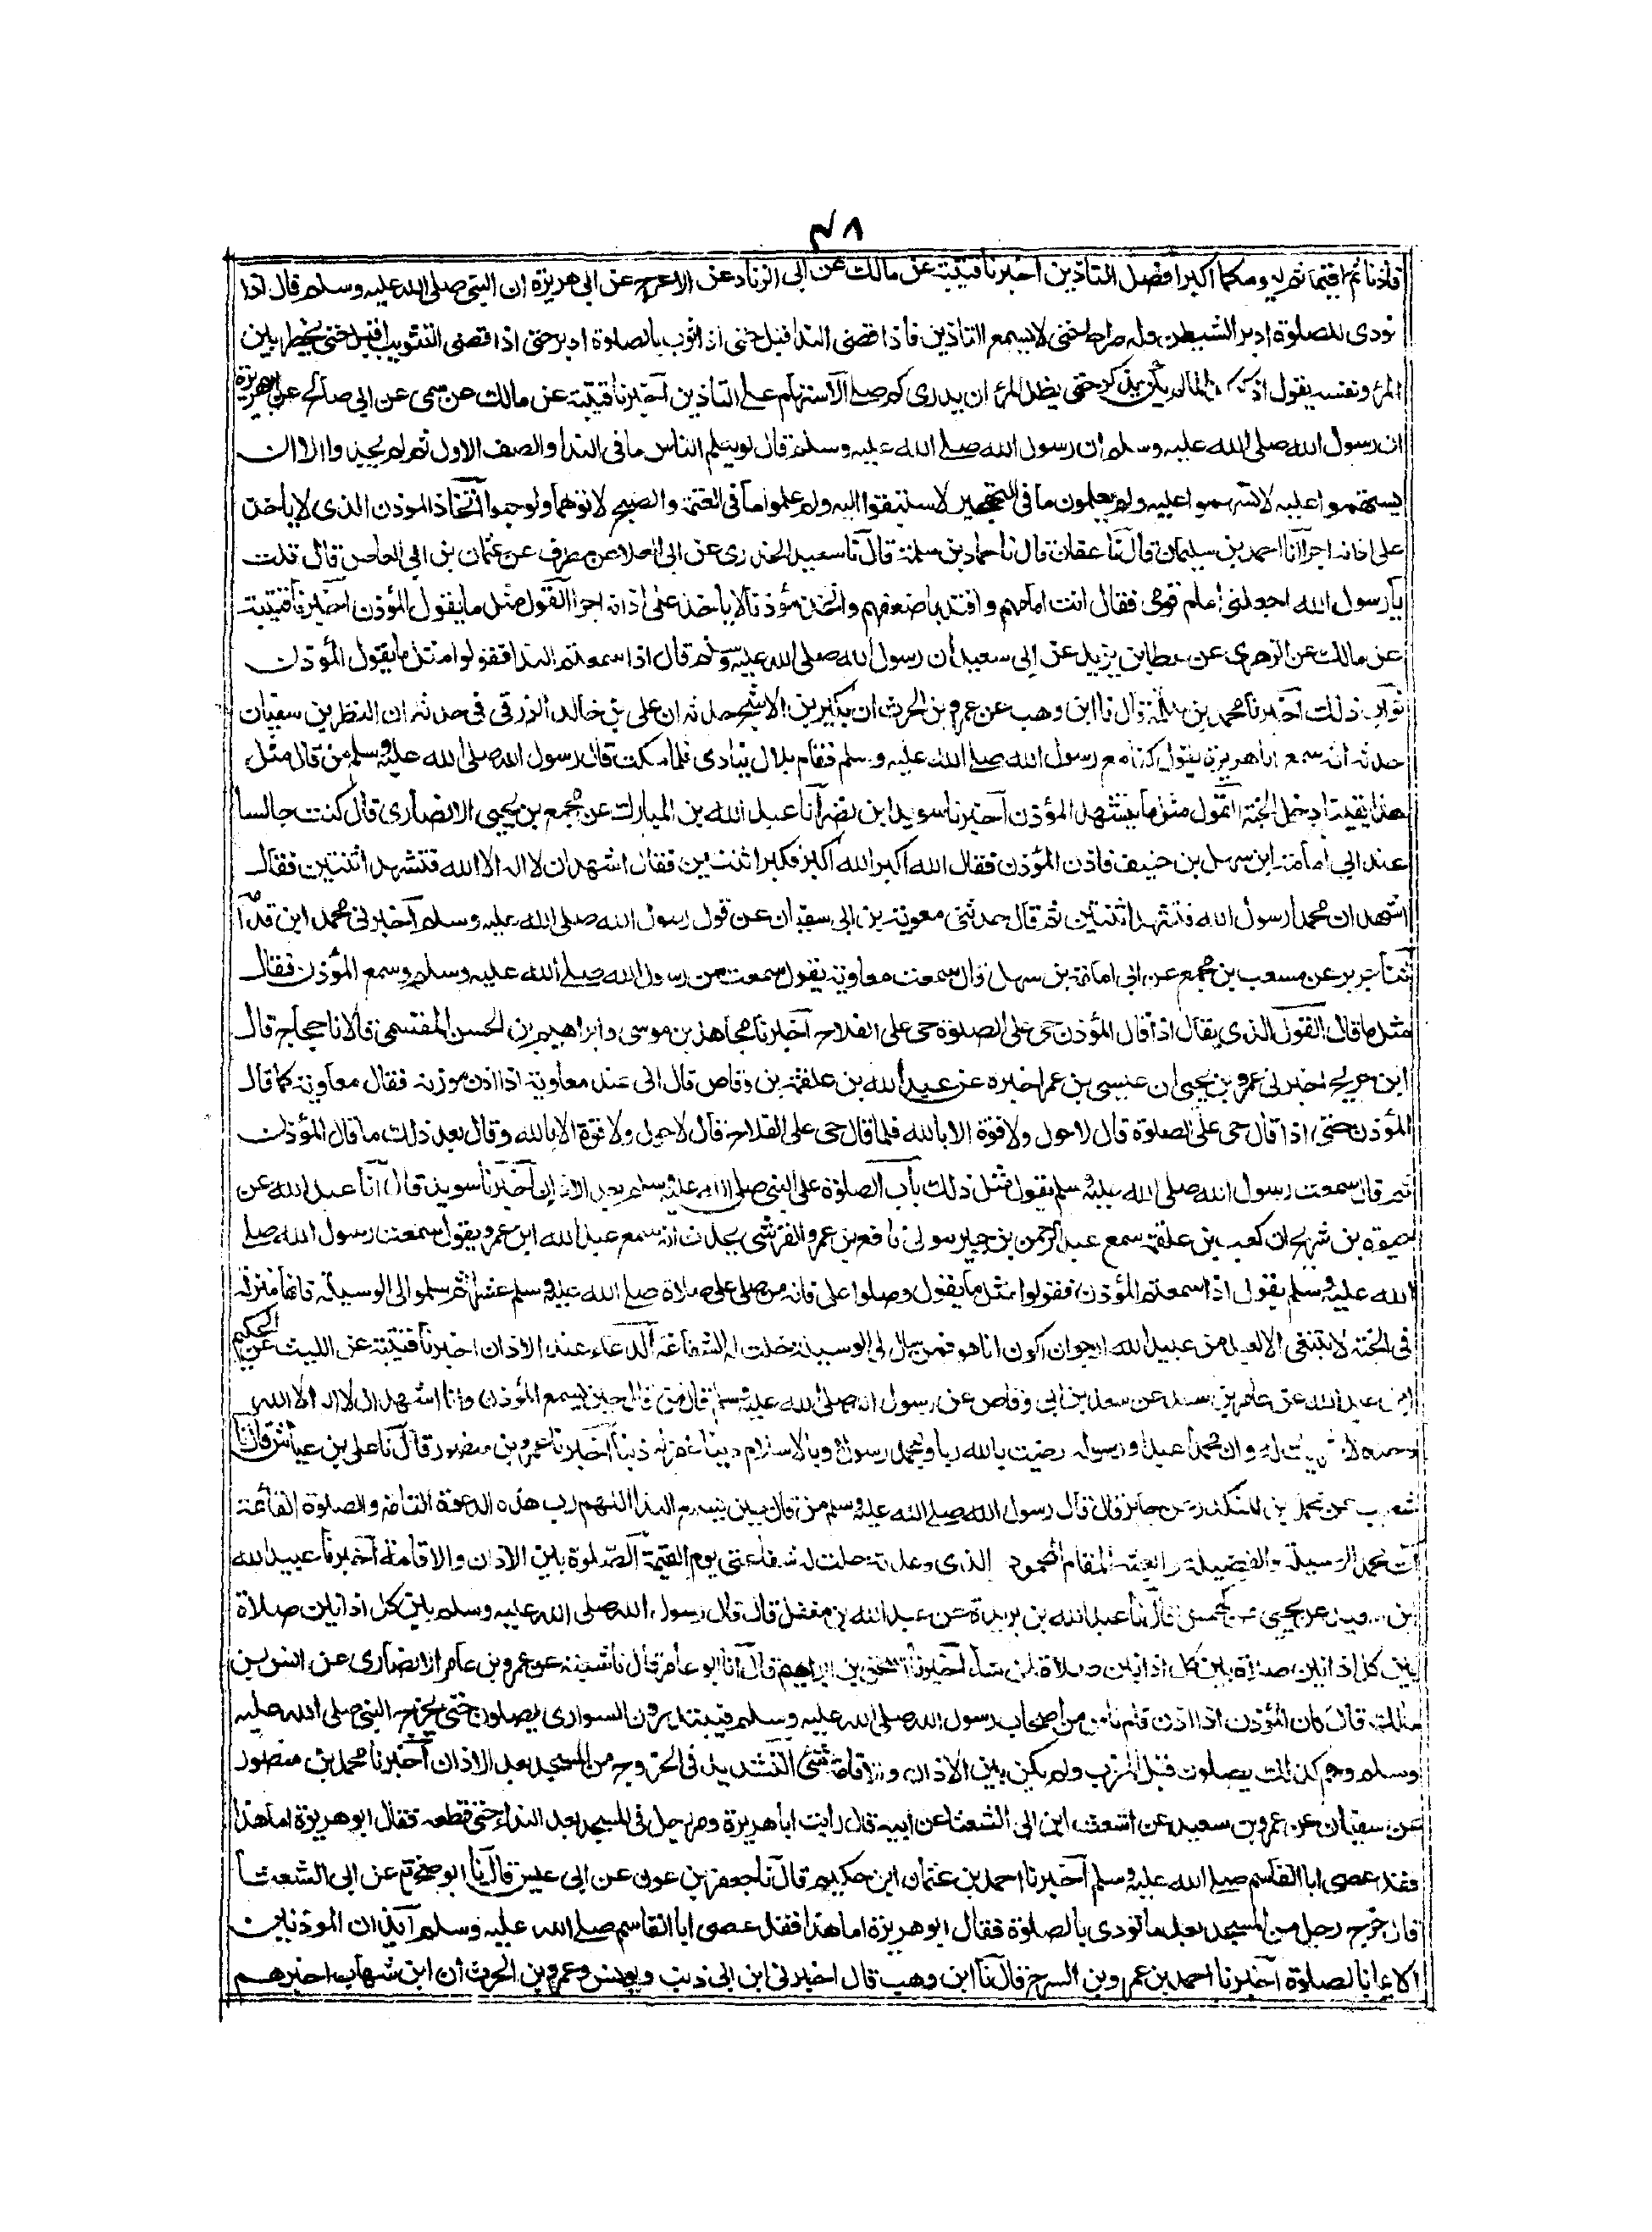 ٧٨
فاذنا ثم اقيما ثم ليومكما اكبرا فضل التاذين اخبرنا قتيبة عن مالك عن ابى الزناد عن الاعرج عن ابى هريرة ان النبى صلى الله عليه وسلم قال اذا
نودى للصلوة ادبر الشيطن وله ضراط حتى لا يسمع التاذين فاذا قضى الندا قبل حتى اذا ثوب بالصلوة ادبر حتى اذا قضى التثويب اقبل حتى يخطر بين
المرٔ ونفسه يقول اذكر لما لم يكن يذكر حتى يظل المرٔ ان يدرى كم صلے الاستهام علے التاذين اخبرنا قتيبة عن مالك عن سمى عن ابى صالح عن ابى هريرة
ان رسول الله صلى الله عليه وسلم ان رسول الله صلے الله عليه وسلم قال لويعلم الناس ما فى الندا والصف الاول ثم لم يجدوا الا ان
يستهموا عليه لاستهموا عليه ولو يعلمون ما فى التهجير لاستبقوا اليه ولو علموا ما فى العتمة والصبح لاتوهما ولو حبوا اتخاذ الموذن الذى لا ياخذ
على اذانه اجرا انا احمد بن سليمان قال نا عفان قال نا حماد بن سلمة قال نا سعيد الجريرى عن ابى العلا عن مطرف عن عثمان بن ابى العاص قال قلت
يا رسول الله اجعلنى امام قومى فقال انت امامهم واقتد باضعفهم واتخذ مؤذنا لا ياخذ على اذانه اجرا القول مثل ما يقول المؤذن اخبرنا قتيبة
عن مالك عن الزهرى عن عطا بن يزيد عن ابى سعيد ان رسول الله صلى الله عليه وسلم قال اذا سمعتم الندا فقولوا مثل ما يقول المؤذن
ثواب ذلك اخبرنا محمد بن سلمة قال نا ابن وهب عن عمرو بن الحرث ان بكير بن الاشج حدثه ان على بن خالد الزرقى فى حدثه ان النظر بن سفيان
حدثه انه سمع ابا هريرة يقول كنا مع رسول الله صلے الله عليه وسلم فقام بلال ينادى فلما سكت قال رسول الله صلى الله عليه وسلم من قال مثل
هذا يقينا دخل الجنة القول مثل ما يتشهد المؤذن اخبرنا سويد ابن نصر انا عبد الله بن المبارك عن مجمع بن يحيى الانصارى قال كنت جالسا
عند ابى امامة ابن سهل بن حنيف فاذن المؤذن فقال الله اكبر الله اكبر فكبر اثنتين فقال اشهد ان لا اله الا الله فتشهد اثنتين فقال
اشهد ان محمدا رسول الله فتشهد اثنتين ثم قال حدثنى معوية بن ابى سفيان عن قول رسول الله صلى الله عليه وسلم اخبرنى محمد ابن قدامة
ثنا جرير عن مسعب بن مجمع عن ابى امامة بن سهل قال سمعت معاوية يقول سمعت من رسول الله صلے الله عليه وسلم وسمع المؤذن فقال
مثل ما قال القول الذى يقال اذا قال المؤذن حى على الصلوة حى على الفلاح اخبرنا مجاهد بن موسى وابراهيم بن الحسن المقسمى قالا نا حجاج قال
ابن جريج اخبرنى عمرو بن يحيى ان عيسى بن عمر اخبره عن عبد الله بن علقمة بن وقاص قال انى عند معاوية اذا اذن موزنه فقال معاوية كما قال
المؤذن حتى اذا قال حى على الصلوة قال لا حول ولا قوة الا بالله فلما قال حى على الفلاح قال لا حول ولا قوة الا بالله وقال بعد ذلك ما قال المؤذن
ثم قال سمعت رسول الله صلى الله عليه وسلم يقول مثل ذلك باب الصلوة على النبى صلى الله عليه وسلم بعد الاذان اخبرنا سويد قال انا عبد الله عن
حيوة بن شريح ان كعب بن علقمة سمع عبد الرحمن بن جبير مولى نافع بن عمرو القرشى يحدث انه سمع عبد الله ابن عمرو يقول سمعت رسول الله صلے
الله عليه وسلم يقول اذا سمعتم المؤذن فقولوا مثل ما يقول وصلوا على فانه من صلى على صلاة صلے الله عليه وسلم عشرا ثم سلوا الى الوسيلة فانها منزلة
فى الجنة لا تبتغى الا لعبد من عبيد الله ارجوان اكون انا هو فمن سال لى الوسيلة حلت له الشفاعة الدعاء عند الاذان اخبرنا قتيبة عن الليث عن الحكيم
ابن عبد الله عن عامر بن سعد عن سعد بن ابى وقاص عن رسول الله صلى الله عليه وسلم قال من قال حين يسمع المؤذن وانا اشهد ان لا اله الا الله
وحده لا شريك له وان محمدا عبده ورسوله رضيت بالله ربا وبمحمد رسولا وبالاسلام دينا غفر له ذنبا اخبرنا عمرو بن منصور قال نا على بن عياش قال نا
شعيب عن محمد بن المنكدر عن جابر قال قال رسول الله صلے الله عليه وسلم من قال حين يسمع الندا اللهم رب هذه الدعوة التامة والصلوة القائمة
ات محمد الوسيلة والفضيلة وابعثه المقام المحمود الذى وعدته حلت له شفاعتى يوم القيمة الصلوة بين الاذان والاقامة اخبرنا عبيد الله
بن عن يحيى عن كهمس قال نا عبد الله بن بريدة عن عبد الله بن مغفل قال قال رسول الله صلى الله عليه وسلم بين كل اذانين صلاة
بين كل اذانين صلاة بين كل اذانين صلاة لمن شاء اخبرنا اسحق بن ابراهيم قال انا ابو عامر قال نا شعبة عن عمرو بن عامر الانصارى عن انس بن
مالك قال كان المؤذن اذا اذن قام ناس من اصحاب رسول الله صلى الله عليه وسلم فيبتدرون السوارى يصلون حتى يخرج النبى صلى الله عليه
وسلم وهم كذلك يصلون قبل المغرب ولم يكن بين الاذان والاقامة شئ التشديد فى الخروج من المسجد بعد الاذان اخبرنا محمد بن منصور
عن سفيان عن عمرو بن سعيد عن اشعث ابن ابى الشعثا عن ابيه قال رايت ابا هريرة ومر رجل فى المسجد بعد النداء حتى قطعه فقال ابو هريرة اما هذا
فقد عصى ابا القاسم صلے الله عليه وسلم اخبرنا احمد بن عثمان ابن حكيم قال نا جعفر بن عون عن ابى عميس قال نا ابو صخرة عن ابى الشعثا
قال خرج رجل من المسجد بعد ما نودى بالصلوة فقال ابو هريرة اما هذا فقد عصى ابا القاسم صلے الله عليه وسلم ايذان الموذنين
الائمة بالصلوة اخبرنا احمد بن عمرو بن السرح قال نا ابن وهب قال اخبرنى ابن ابى ذئب ويونس وعمرو بن الحرث ان ابن شهاب اخبرهم